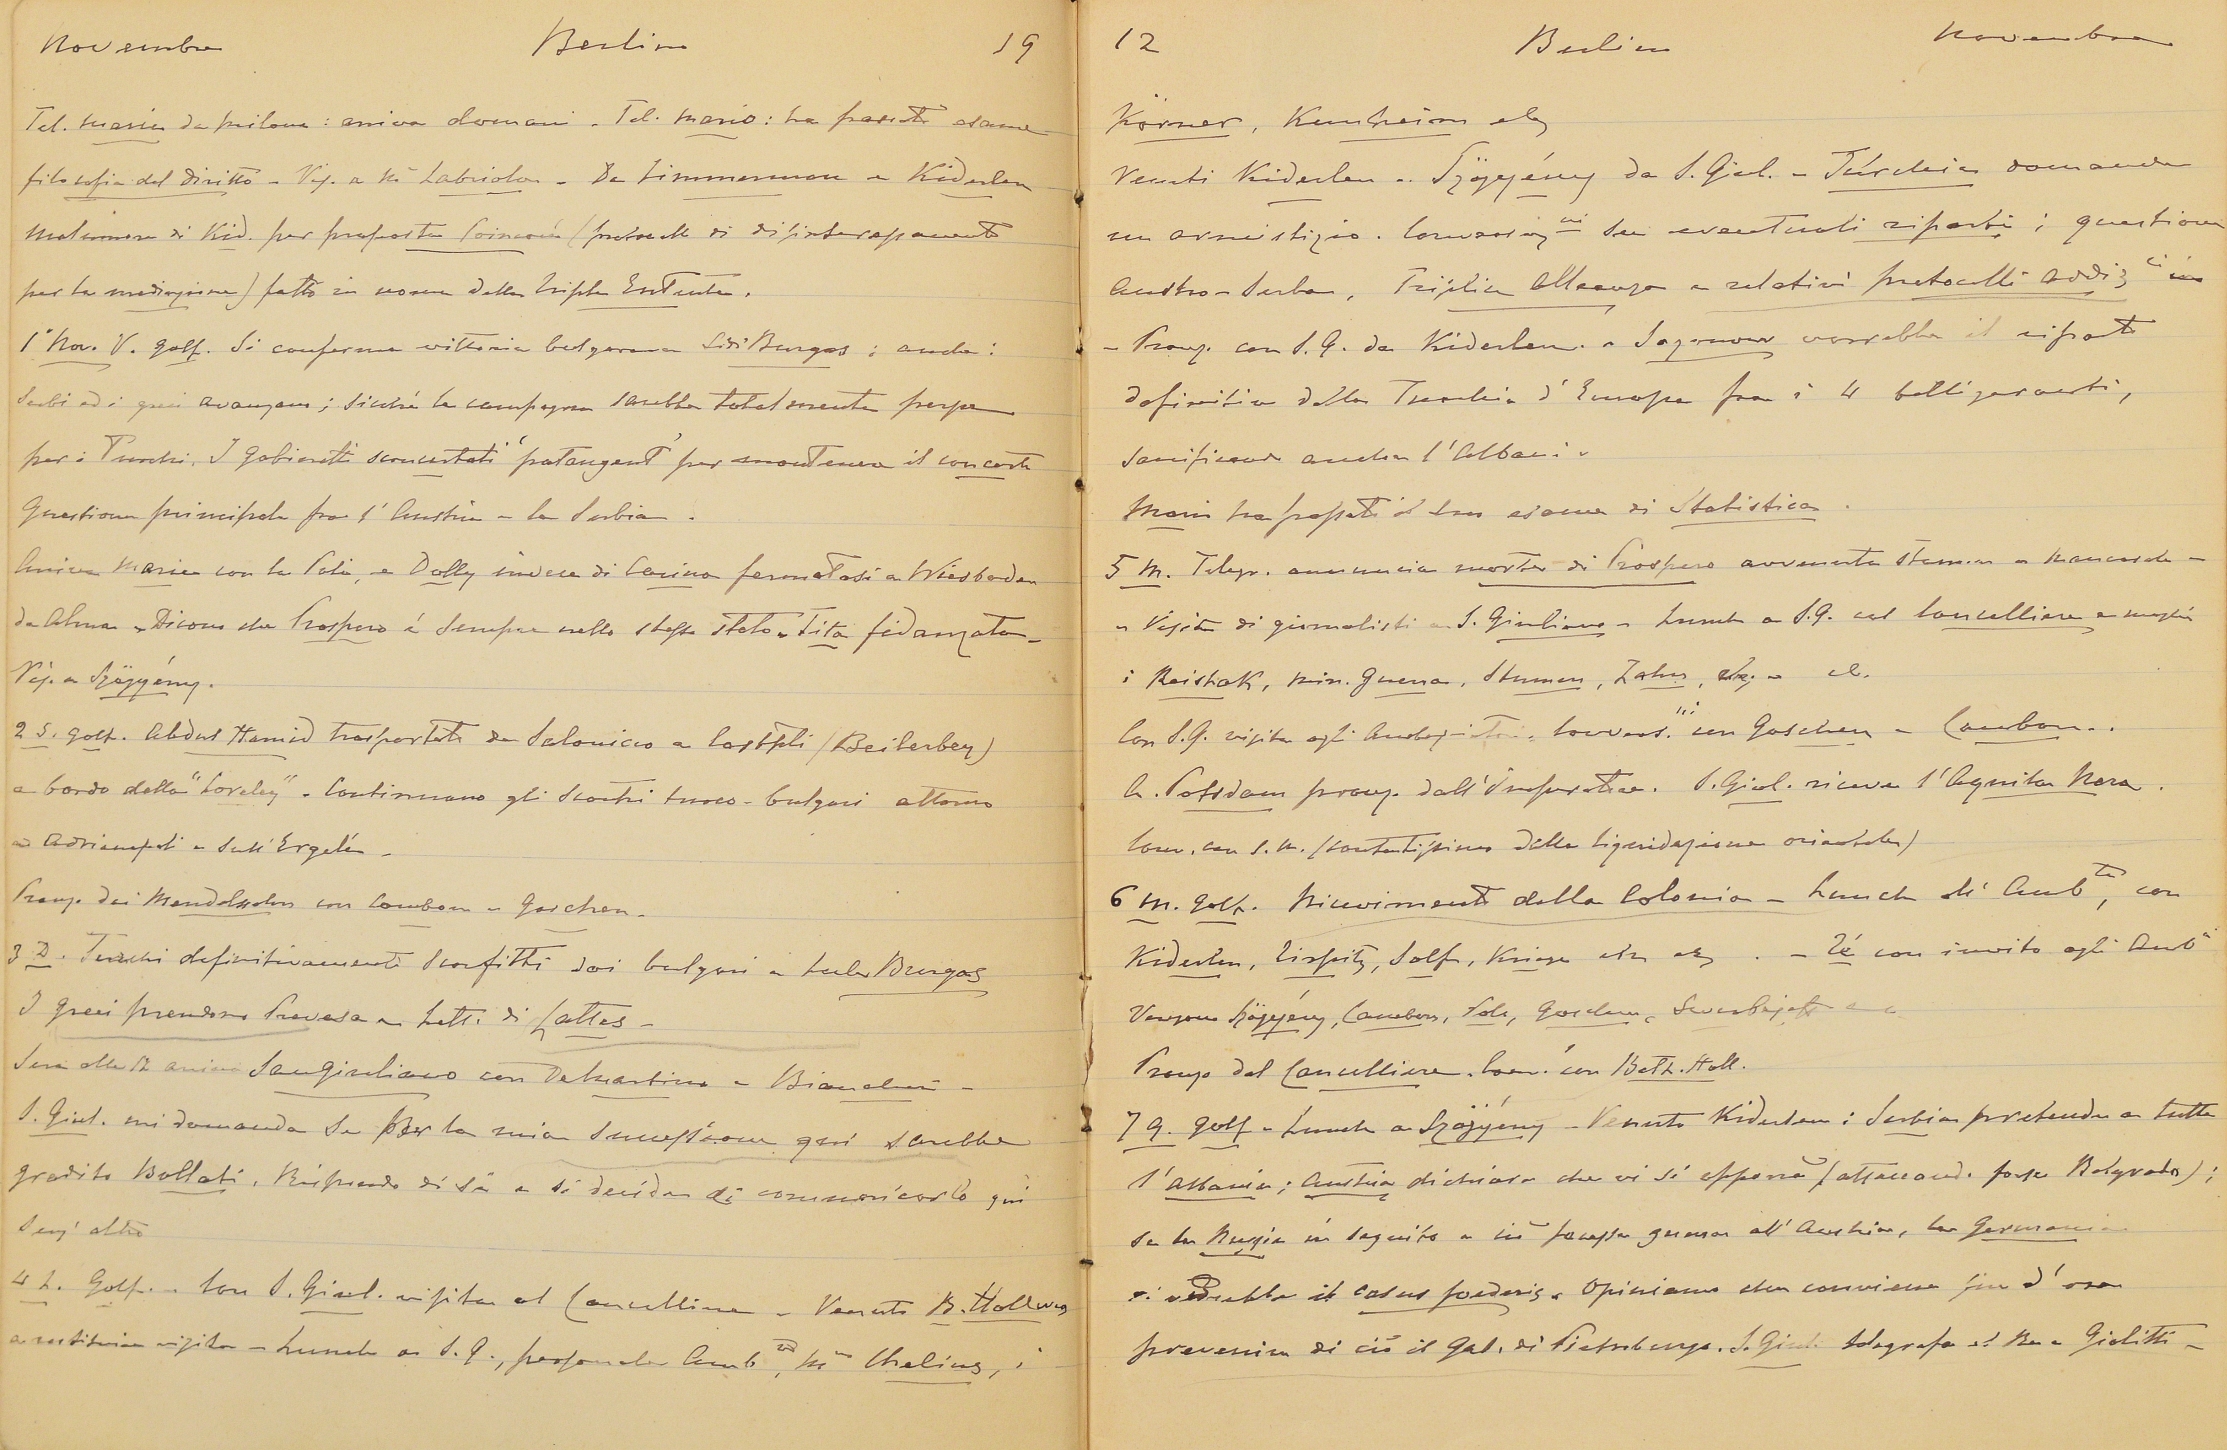 Novembre Berlino 19
Tel. Maria da Milano: arriva domani - Tel. Mario: ha passato esame
filosofia del diritto - Vis. a Labriola - Da Zimmermann e Kiderlen
malumore di Kid. per proposta Poincaré (protocollo di disinteressamento
per la mediazione) fatto in nome della triple Entente.
1° Nov. V. golf. Si conferma vittoria bulgara a Burgas; anche i
Serbi ed i greci avanzano; sicché la campagna sarebbe totalmente persa
per i Turchi. I Gabinetti sconcertati "patangent" per mantenere il concerto
Questione principale fra l'Austria e la Serbia.
Arriva Maria con la Dolly invece di Carina fermatasi a Wiesbaden
da Alma - Dicono che Prospero è sempre nello stesso stato - Tita fidanzata -
Vis. a Szögyény.
2 S. golf. Abdul Hamid trasportato da Salonicco a Costpli (Beilerbey)
a bordo della "Loreley" - Continuano gli scontri turco-bulgari attorno
ad Adrianopoli e sull'Ergene -
Pranzo dai Mendelssohn con Cambon e Goschen -
3 D. Turchi definitivamente sconfitti dai bulgari a Lule Burgas
I greci prendono Prevesa
Sera alle arriva Sangiuliano con De Martino e Biancheri -
S. Giul. mi domanda se per la mia successione qui sarebbe
gradito Bollati. Rispondo di sì e si decide di comunicarlo qui
senz'altro
4 L. Golf. - Con S. Giul. visita al Cancelliere - Venuto B. Hollweg
a restituire visita - Lunch a S. G., personale Amb.ta, Chelius, i
12 Berlino Novembre
Körner, Kunheim etc
Venuti Kiderlen e Szögyény da S. Giul. - Turchia domanda
un armistizio. Conversaz.ni su eventuali riparti; questione
Austro-Serba, Triplice Alleanza e relativi protocolli addiz.ci
- Pranzo con S. G. da Kiderlen. - Sazonow vorrebbe il riparto
definitivo della Turchia d'Europa fra i 4 belligeranti,
sacrificando anche l'Albania
Mario ha passato il suo esame di Statistica.
5 M. Telegr. annuncia morte di Prospero avvenuta stamane a
- Visita di giornalisti a S. Giuliano - Lunch a S. G. col Cancelliere e moglie
i Reishak, min. guerra, Stumm, Zahn, etc.
Con S. G. visita agli Ambasciatori, convers.ni con Goschen e Cambon.
A Potsdam pranzo dall'Imperatore. S. Giul. riceve l'Aquila Nera.
Conv. con S. M. (contentissimo della liquidazione orientale)
6 M. golf. Ricevimento della Colonia - Lunch all'Amb.ta, con
Kiderlen, Tirpitz, Solf, Kriege etc etc. - Té con invito agli Amb.ri
Vengono Szögyény, Cambon, Polo, Goschen, Swerbejeff
Pranzo dal Cancelliere. Conv. con Beth. Holl.
7 G. golf - Lunch a Szögyény - Venuto Kiderlen: Serbia pretende a tutta
l'Albania; Austria dichiara che vi si opporrà (attaccando forse Belgrado);
se la Russia in seguito a ciò facesse guerra all'Austria, la Germania
vi vedrebbe il casus foederis - Opiniamo che conviene fin d'ora
prevenire di ciò il Gab. di Pietroburgo. S. Giul. telegrafa al Re e Giolitti -